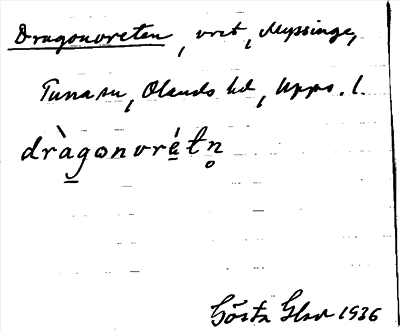 Dragonvreten, vret, Myssinge,
Tuna sn, Olands hd, Upps. l.
dràgonvrétn̥
Gösta Glad 1936